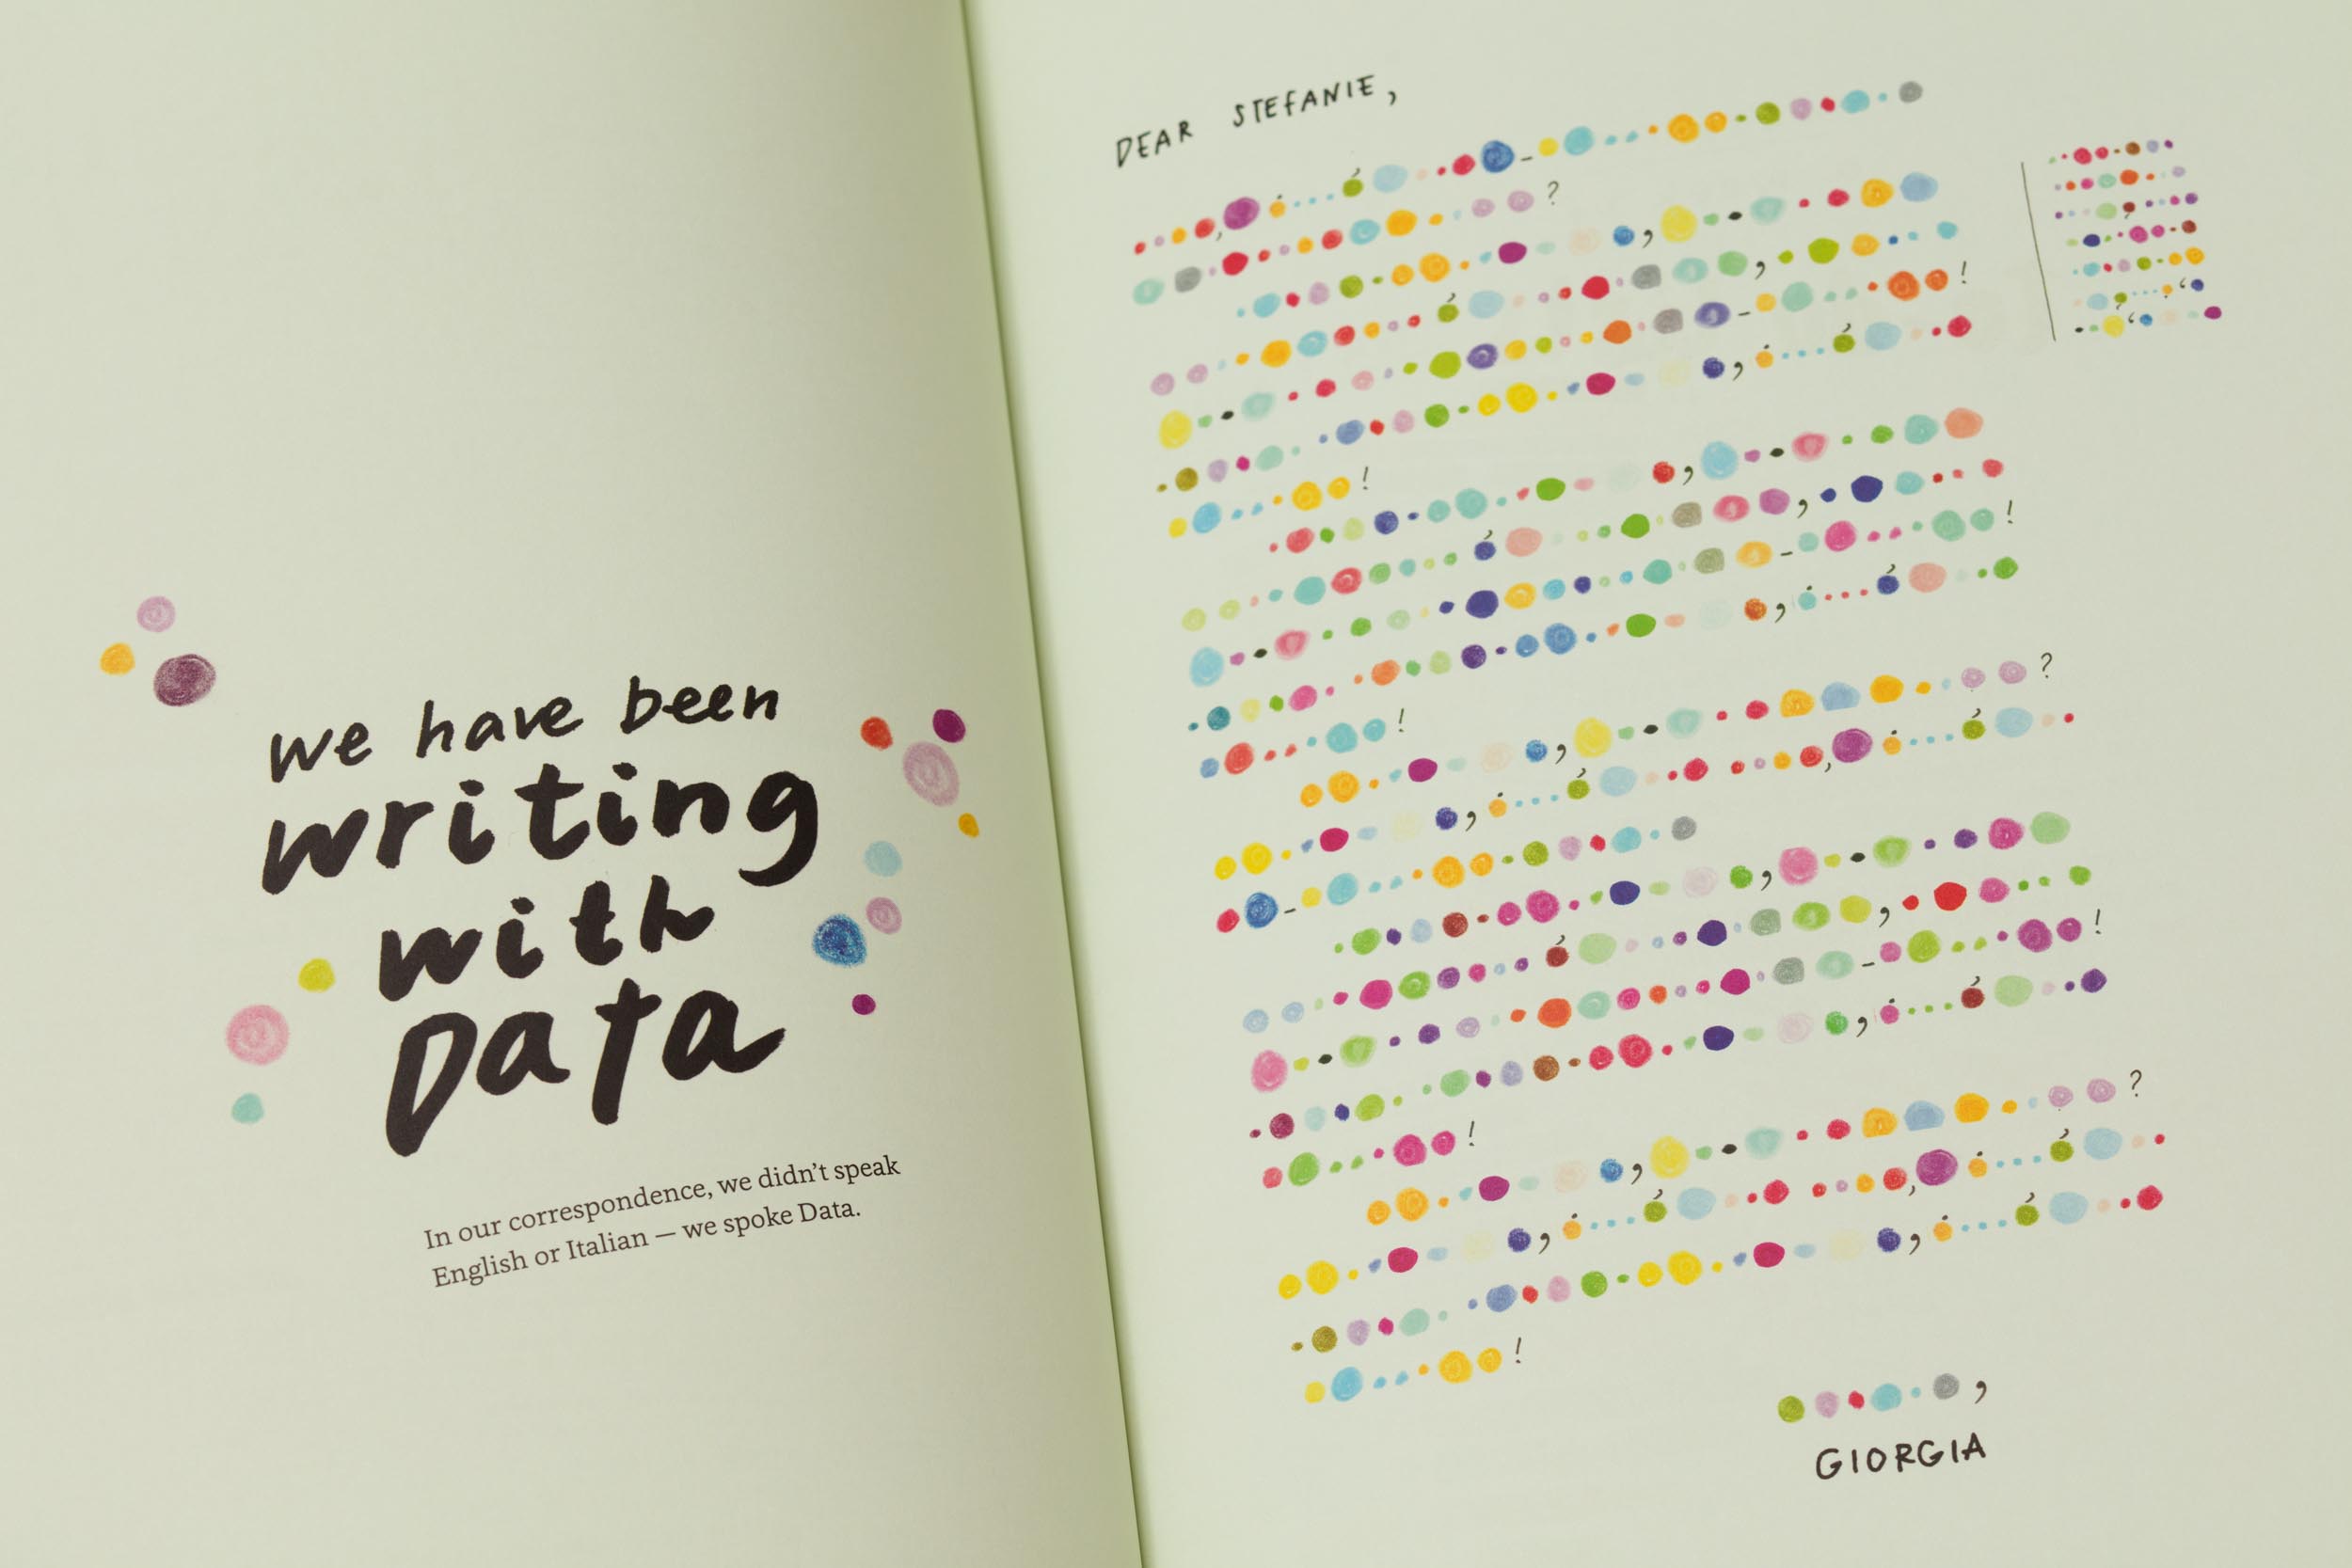 we have been
writing
with
Data
In our correspondence, we didn't speak
English or Italian — we spoke Data.
DEAR STEFANIE,
GIORGIA